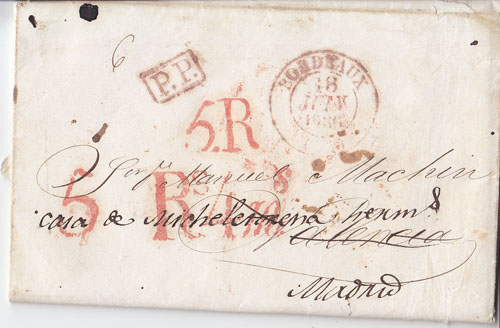 6
P.P.
BORDEAUX
18
JUIN
5.R
Sor. Dn. Manuel Machin
5 Rs
casa de Michelerena herms
Valencia
Madrid